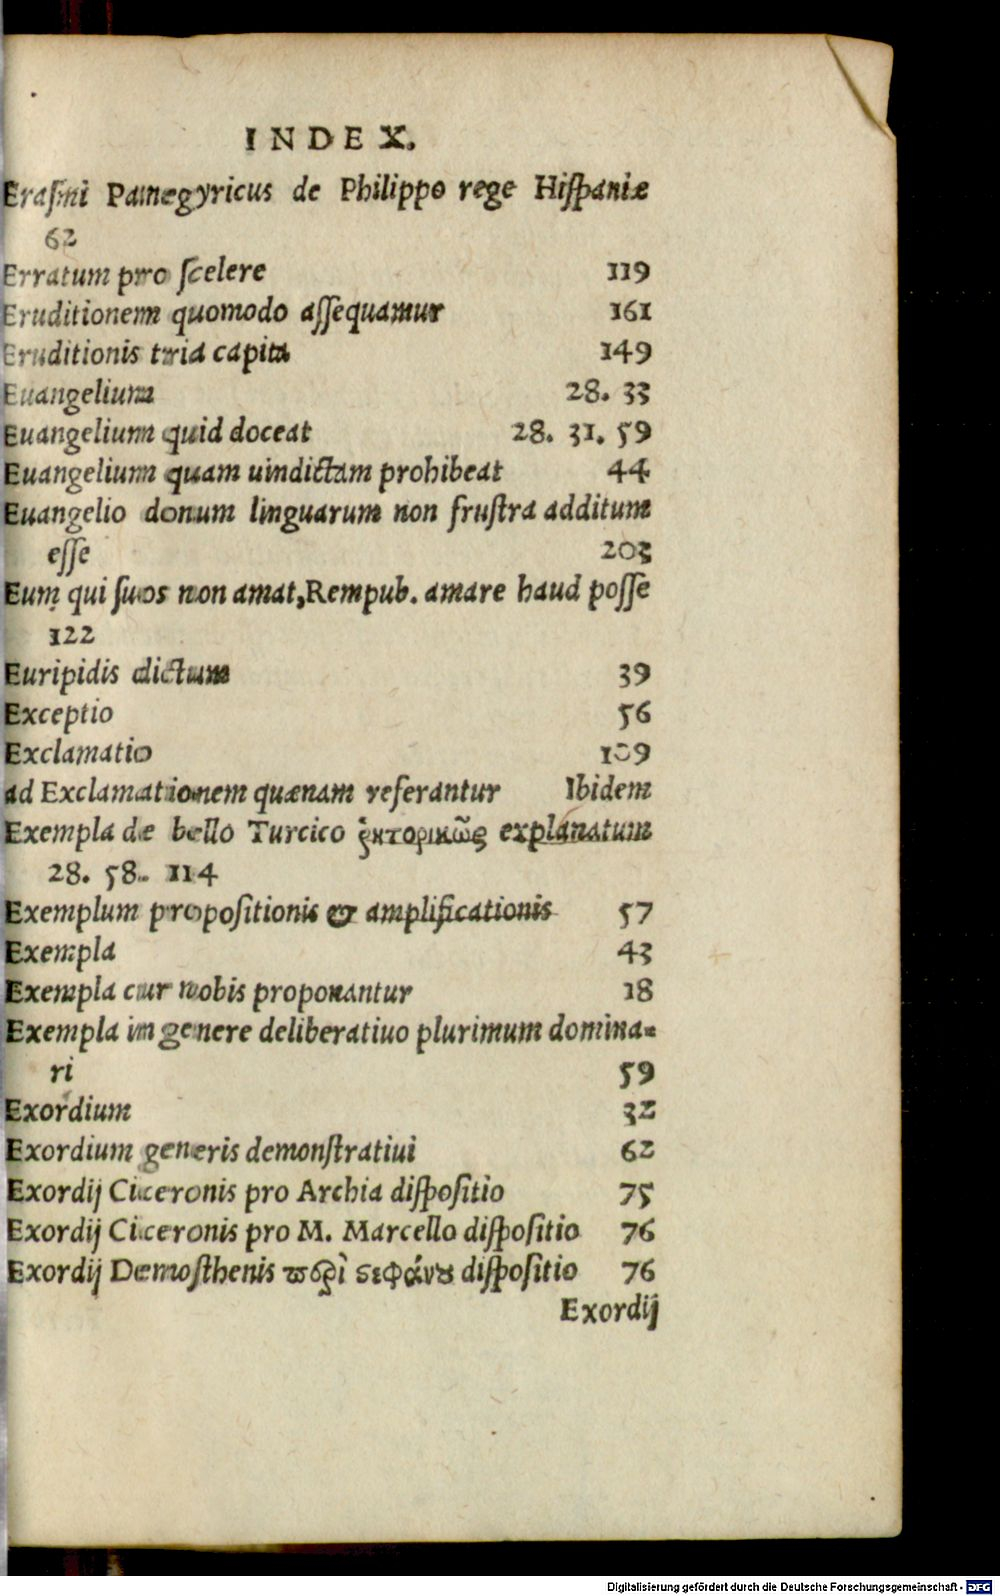 INDEX.
Erasmi Panegyricus de Philippo rege Hiſpaniæ
62
Erratum pro ſcelere 119
Eruditionem quomodo aſſequamur 161
Eruditionis tria capita 149
Euangelium 28. 33
Euangelium quid doceat 28. 31. 59
Euangelium quam uindictam prohibeat 44
Euangelio donum linguarum non fruſtra additum
eſſe 203
Eum qui ſuos non amat, Rempub. amare haud poſſe
122
Euripidis dictum 39
Exceptio 56
Exclamatio 109
ad Exclamationem quænam referantur Ibidem
Exempla de bello Turcico ῥητορικῶς explanatum
28. 58. 114
Exemplum propoſitionis & amplificationis 57
Exempla 43
Exempla cur nobis proponantur 18
Exempla in genere deliberatiuo plurimum domina=
ri 59
Exordium 32
Exordium generis demonſtratiui 62
Exordij Ciceronis pro Archia diſpoſitio 75
Exordij Ciceronis pro M. Marcello diſpoſitio 76
Exordij Demoſthenis περὶ στεφάνου diſpoſitio 76
Exordij
Digitalisierung gefördert durch die Deutsche Forschungsgemeinschaft - DFG